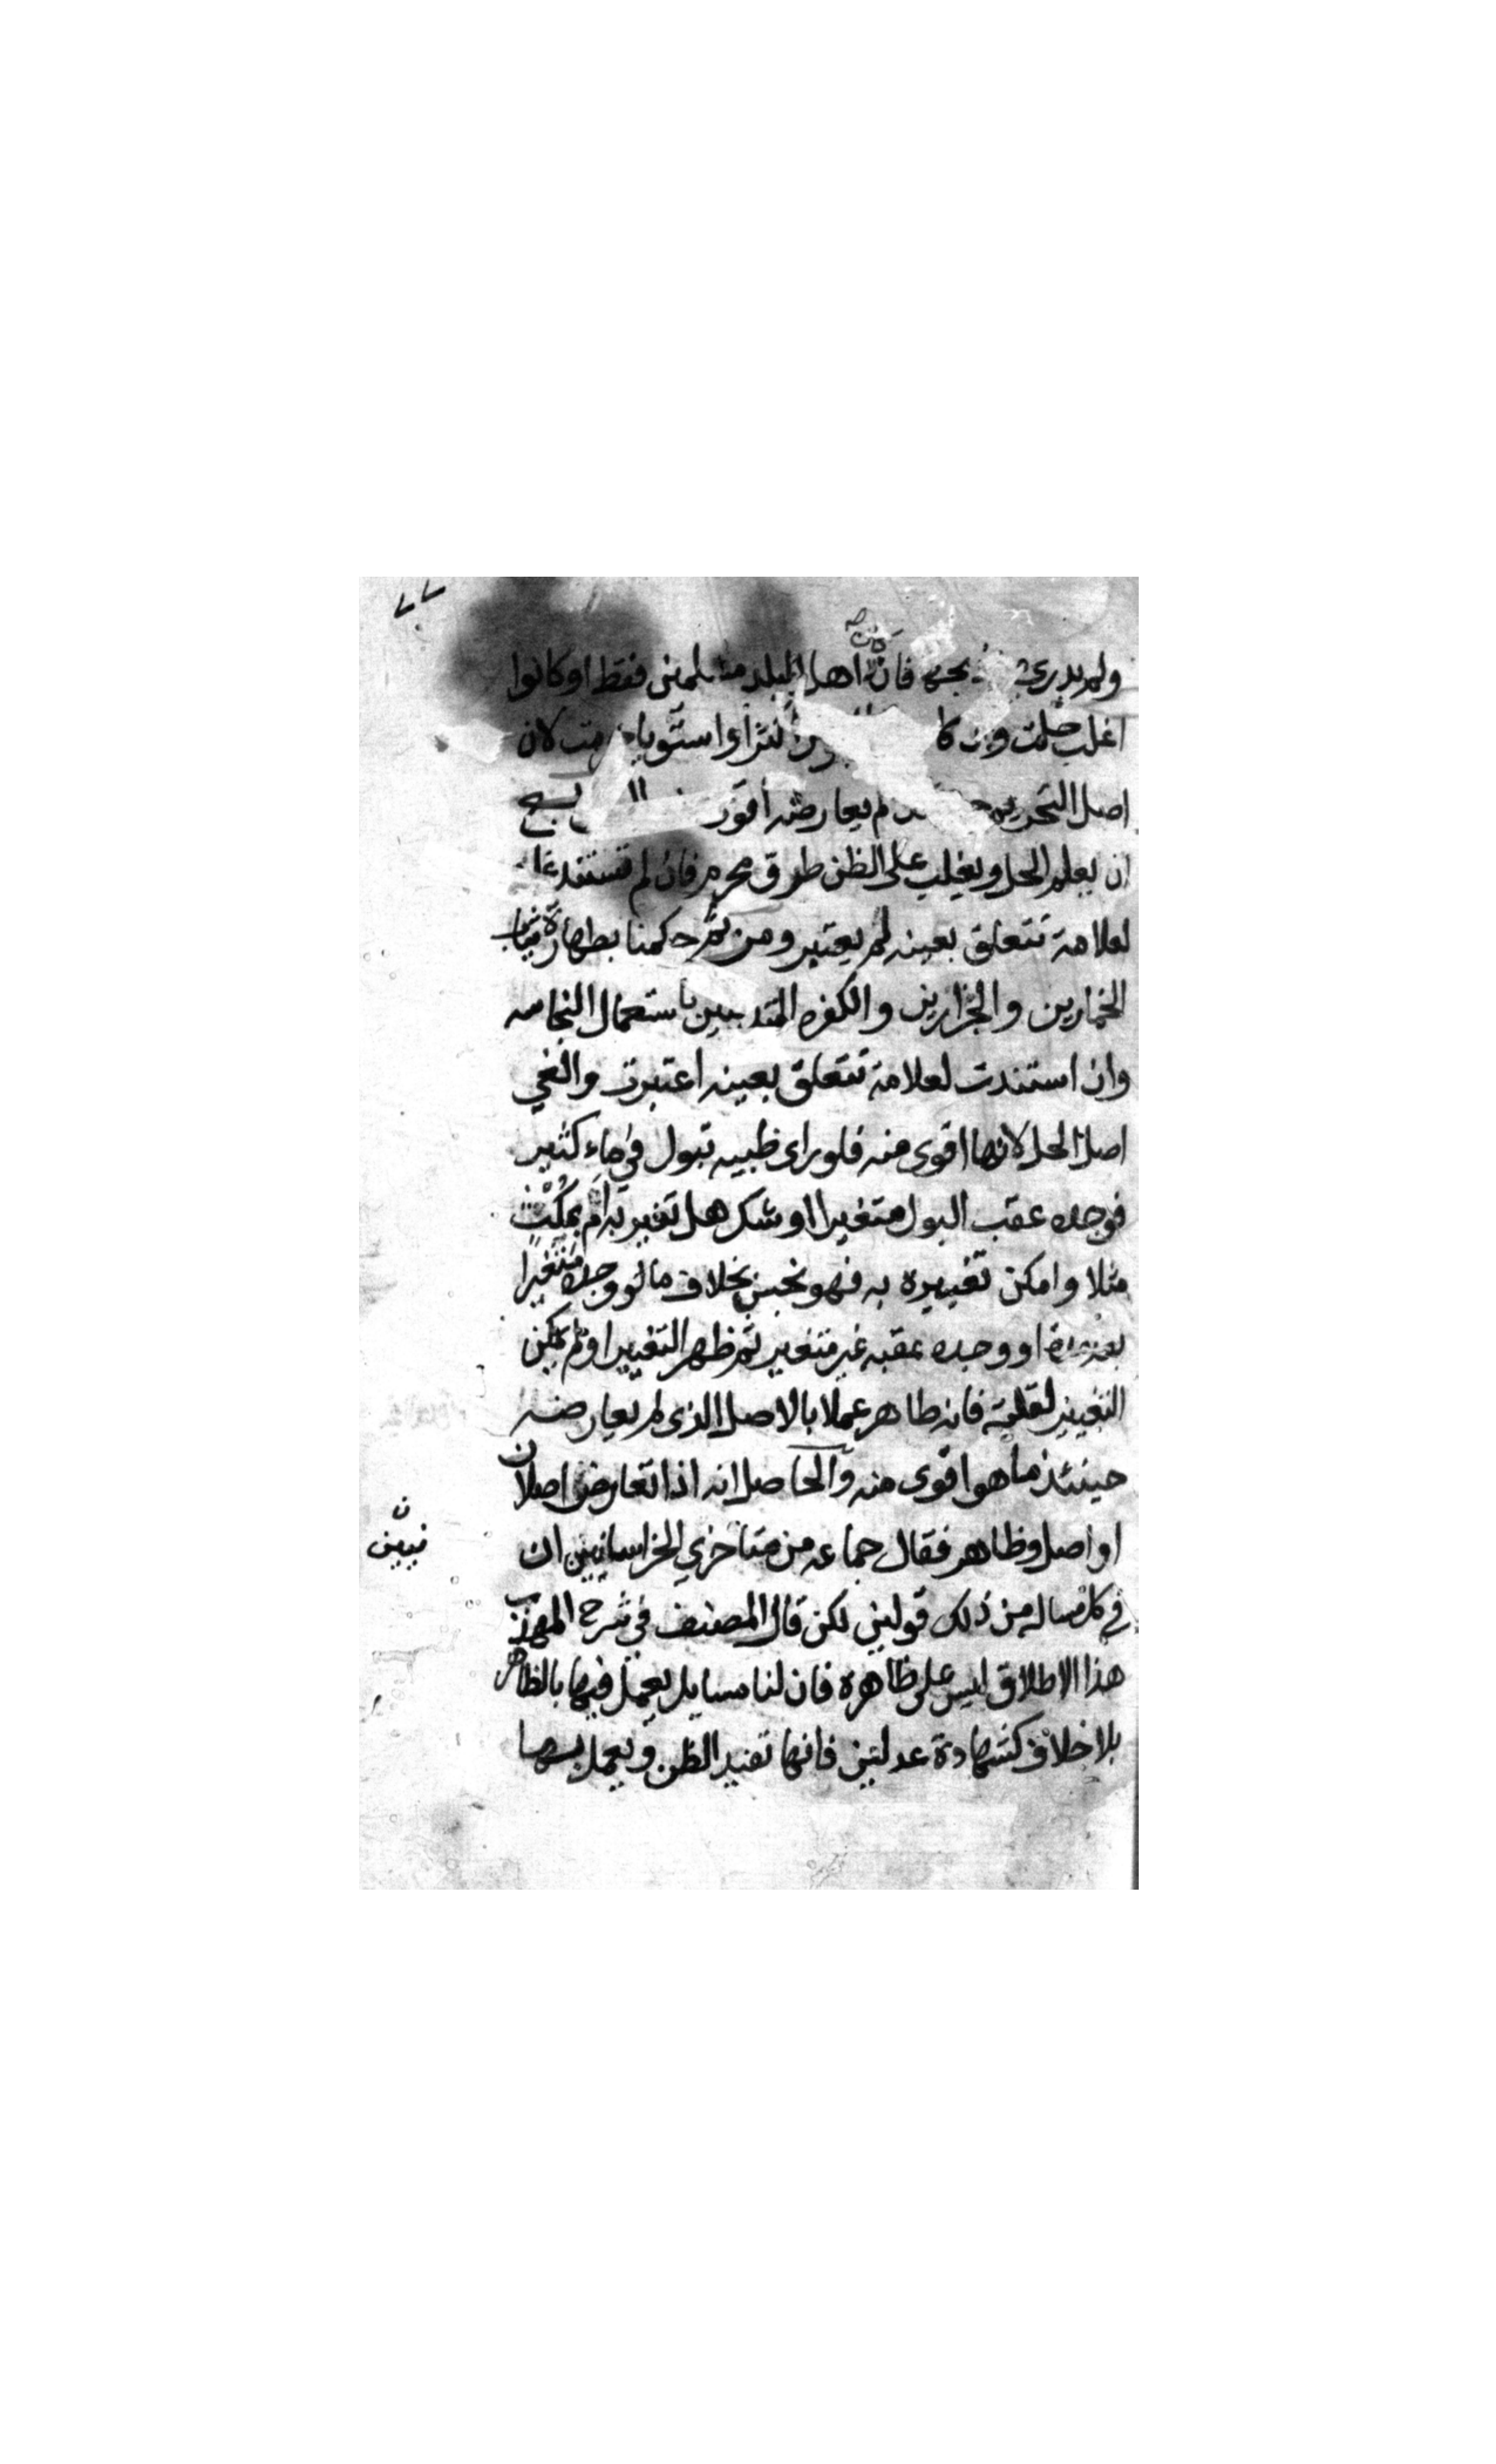 ولم يدر فان اهل البلد فقط او كانوا
اغلب حلت وان لان
اصل التحريم لم يعارضه اقوى
ان يعلم الحل ويغلب على الظن طروق محرم فان لم تستند
لعلامة تتعلق بعينه لم يعتبر ومن ثم حكمنا بطهارة ثياب
الخمارين والجزارين والكفره المتدينين باستعمال النجاسه
وان استندت لعلامة تتعلق بعينه اعتبرت والغي
اصل الحل لانها اقوى منه فلو راى ظبيه تبول في ماء كثير
فوجده عقب البول متغيرا او شك هل تغير به ام بمكث
مثلا وامكن تغييره به فهو نجس بخلاف ما لو وجده متغيرا
بعد مدة او وجده عقبه غير متغير ثم ظهر التغيير او لم يمكن
التغيير لقلته فانه طاهر عملا بالاصل الذى لم يعارضه
حينئذ ما هو اقوى منه والحاصل انه اذا تعارض اصلان
او اصل وظاهر فقال جماعه من متاخري الخراسانيين ان
في كل مساله من ذلك قولين لكن قال المصنف في شرح المهذب
هذا الاطلاق ليس على ظاهره فان لنا مسايل يعمل فيها بالظاهر
بلا خلاف كشهادة عدلين فانها تفيد الظن ويعمل بها